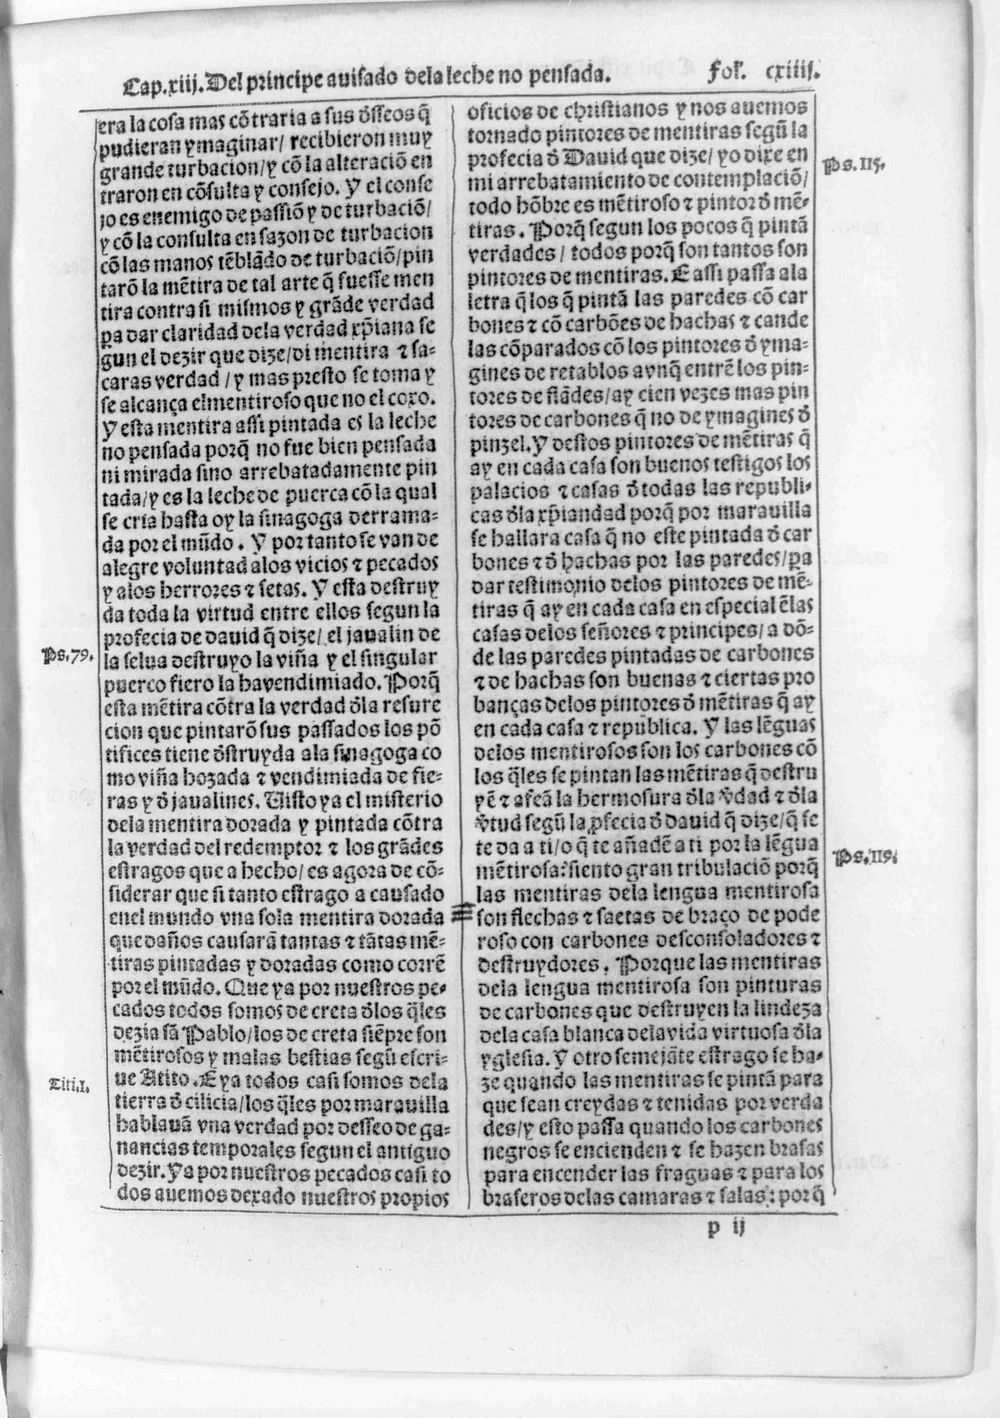 Cap.xiij.Del principe auisado dela leche no pensada. Fol. cxiiij.
era la cosa mas cõtraria a sus ð̃sseos q̃
pudieran ymaginar/ recibieron muy
grande turbacion/y cõ la alteraciõ en
traron en cõsulta y consejo. Y el conse
jo es enemigo de passiõ y de turbaciõ/
y cõ la consulta en sazon de turbacion
cõ las manos tẽblãdo de turbaciõ/pin
tarõ la mẽtira de tal arte q̃ fuesse men
tira contra si mismos y grãde verdad
p̃a dar claridad dela verdad xp̃iana se
gun el dezir que dize/di mentira ⁊ sa-
caras verdad /y mas presto se toma y
se alcança el mentiroso que no el coxo.
Y esta mentira assi pintada es la leche
no pensada porq̃ no fue bien pensada
ni mirada sino arrebatadamente pin
tada/y es la leche de puerca cõ la qual
se cria hasta oy la sinagoga derrama-
da por el mũdo. Y por tanto se van de
alegre voluntad alos vicios ⁊ pecados
y alos herrores ⁊ setas. Y esta destruy
da toda la virtud entre ellos segun la
profecia de dauid q̃ dize/ el jaualin de
Ps.79. la selua destruyo la viña y el singular
puerco fiero la ha vendimiado. Porq̃
esta mẽtira cõtra la verdad ð̃la resure
cion que pintarõ sus passados los põ
tifices tiene ð̃struyda ala sinagoga co
mo viña hozada ⁊ vendimiada de fie-
ras y ð̃ jaualines. Uisto ya el misterio
dela mentira dorada y pintada cõtra
la verdad del redemptor ⁊ los grãdes
estragos que a hecho/ es agora de cõ-
siderar que si tanto estrago a causado
enel mundo vna sola mentira dorada
que daños causarã tantas ⁊ tãtas mẽ-
tiras pintadas y doradas como corrẽ
por el mũdo. Que ya por nuestros pe-
cados todos somos de creta ð̃los q̃les
dezia sã Pablo/los de creta siẽpre son
mẽtirosos y malas bestias segũ escri-
Titi.1. ue Atito. E ya todos casi somos dela
tierra ð̃ cilicia/los q̃les por marauilla
hablauã vna verdad por desseo de ga-
nancias temporales segun el antiguo
dezir. Ya por nuestros pecados casi to
dos auemos dexado nuestros propios
oficios de christianos y nos auemos
tornado pintores de mentiras segũ la
profecia ð̃ Dauid que dize/ yo dixe en Ps.115.
mi arrebatamiento de contemplaciõ/
todo hõbre es mẽtiroso ⁊ pintor ð̃ mẽ-
tiras. Porq̃ segun los pocos q̃ pintã
verdades/ todos porq̃ son tantos son
pintores de mentiras. E assi passa ala
letra q̃ los q̃ pintã las paredes cõ car
bones ⁊ cõ carbões de hachas ⁊ cande
las cõparados cõ los pintores ð̃ yma-
gines de retablos avnq̃ entrẽ los pin-
tores de flãdes/ay cien vezes mas pin
tores de carbones q̃ no de ymagines ð̃
pinzel. Y destos pintores de mẽtiras q̃
ay en cada casa son buenos testigos los
palacios ⁊ casas ð̃ todas las republi-
cas ð̃la xp̃iandad porq̃ por marauilla
se hallara casa q̃ no este pintada ð̃ car
bones ⁊ ð̃ hachas por las paredes/p̃a
dar testimonio delos pintores de mẽ-
tiras q̃ ay en cada casa en especial ẽlas
casas delos señores ⁊ principes/ a dõ-
de las paredes pintadas de carbones
⁊ de hachas son buenas ⁊ ciertas pro
banças delos pintores ð̃ mẽtiras q̃ ay
en cada casa ⁊ republica. Y las lẽguas
delos mentirosos son los carbones cõ
los q̃les se pintan las mẽtiras q̃ destru
yẽ ⁊ afeã la hermosura ð̃la v̾dad ⁊ ð̃la
v̾tud segũ la ꝓfecia ð̃ Dauid q̃ dize/ q̃ se
te da a ti/o q̃ te añadẽ a ti por la lẽgua Ps.119.
mẽtirosa: siento gran tribulaciõ porq̃
las mentiras dela lengua mentirosa
son flechas ⁊ saetas de braço de pode
roso con carbones desconsoladores ⁊
destruydores. Porque las mentiras
dela lengua mentirosa son pinturas
de carbones que destruyen la lindeza
dela casa blanca dela vida virtuosa ð̃la
yglesia. Y otro semejãte estrago se ha-
ze quando las mentiras se pintã para
que sean creydas ⁊ tenidas por verda
des/y esto passa quando los carbones
negros se encienden ⁊ se hazen brasas
para encender las fraguas ⁊ para los
braseros delas camaras ⁊ salas: porq̃
p ij